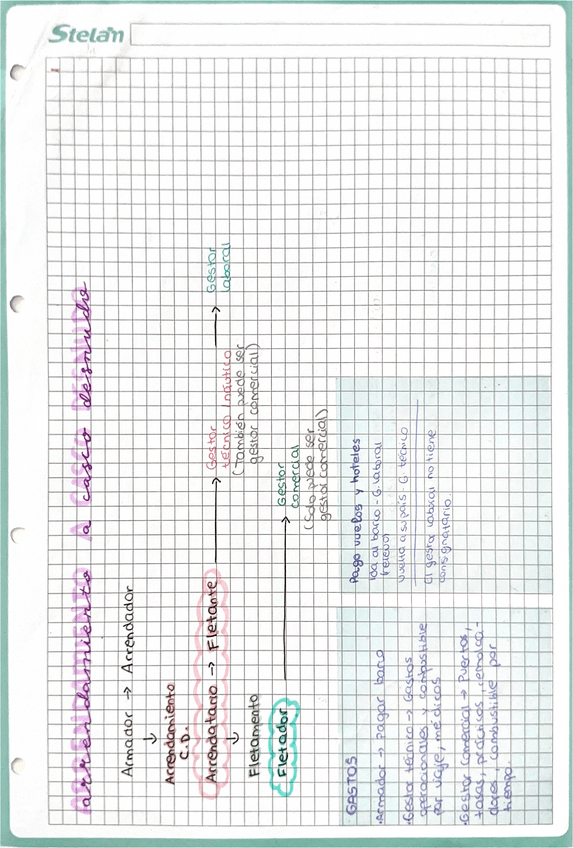 Stelan
ARRENDAMIENTO A CASCO DESNUDO
arrendamiento a casco desnudo
Armador → Arrendador
↓
Arrendamiento
C.D.
Arrendatario → Fletante → Gestor técnico / náutico → Gestor laboral
(También puede ser
gestor comercial)
↓
Fletamento
Fletador → Gestor comercial
(Solo puede ser
gestor comercial)
GASTOS
·Armador → Pagar barco
·Gestor técnico → Gastos
operacionales y combustible
por viaje, médicos
·Gestor comercial → Puertos,
tasas, prácticos, remolca-
dores, combustible por
tiempo.
Pago vuelos y hoteles
Ida al barco - G. laboral
(relevo)
vuelta a su país - G. técnico
El gestor laboral no tiene
consignatario